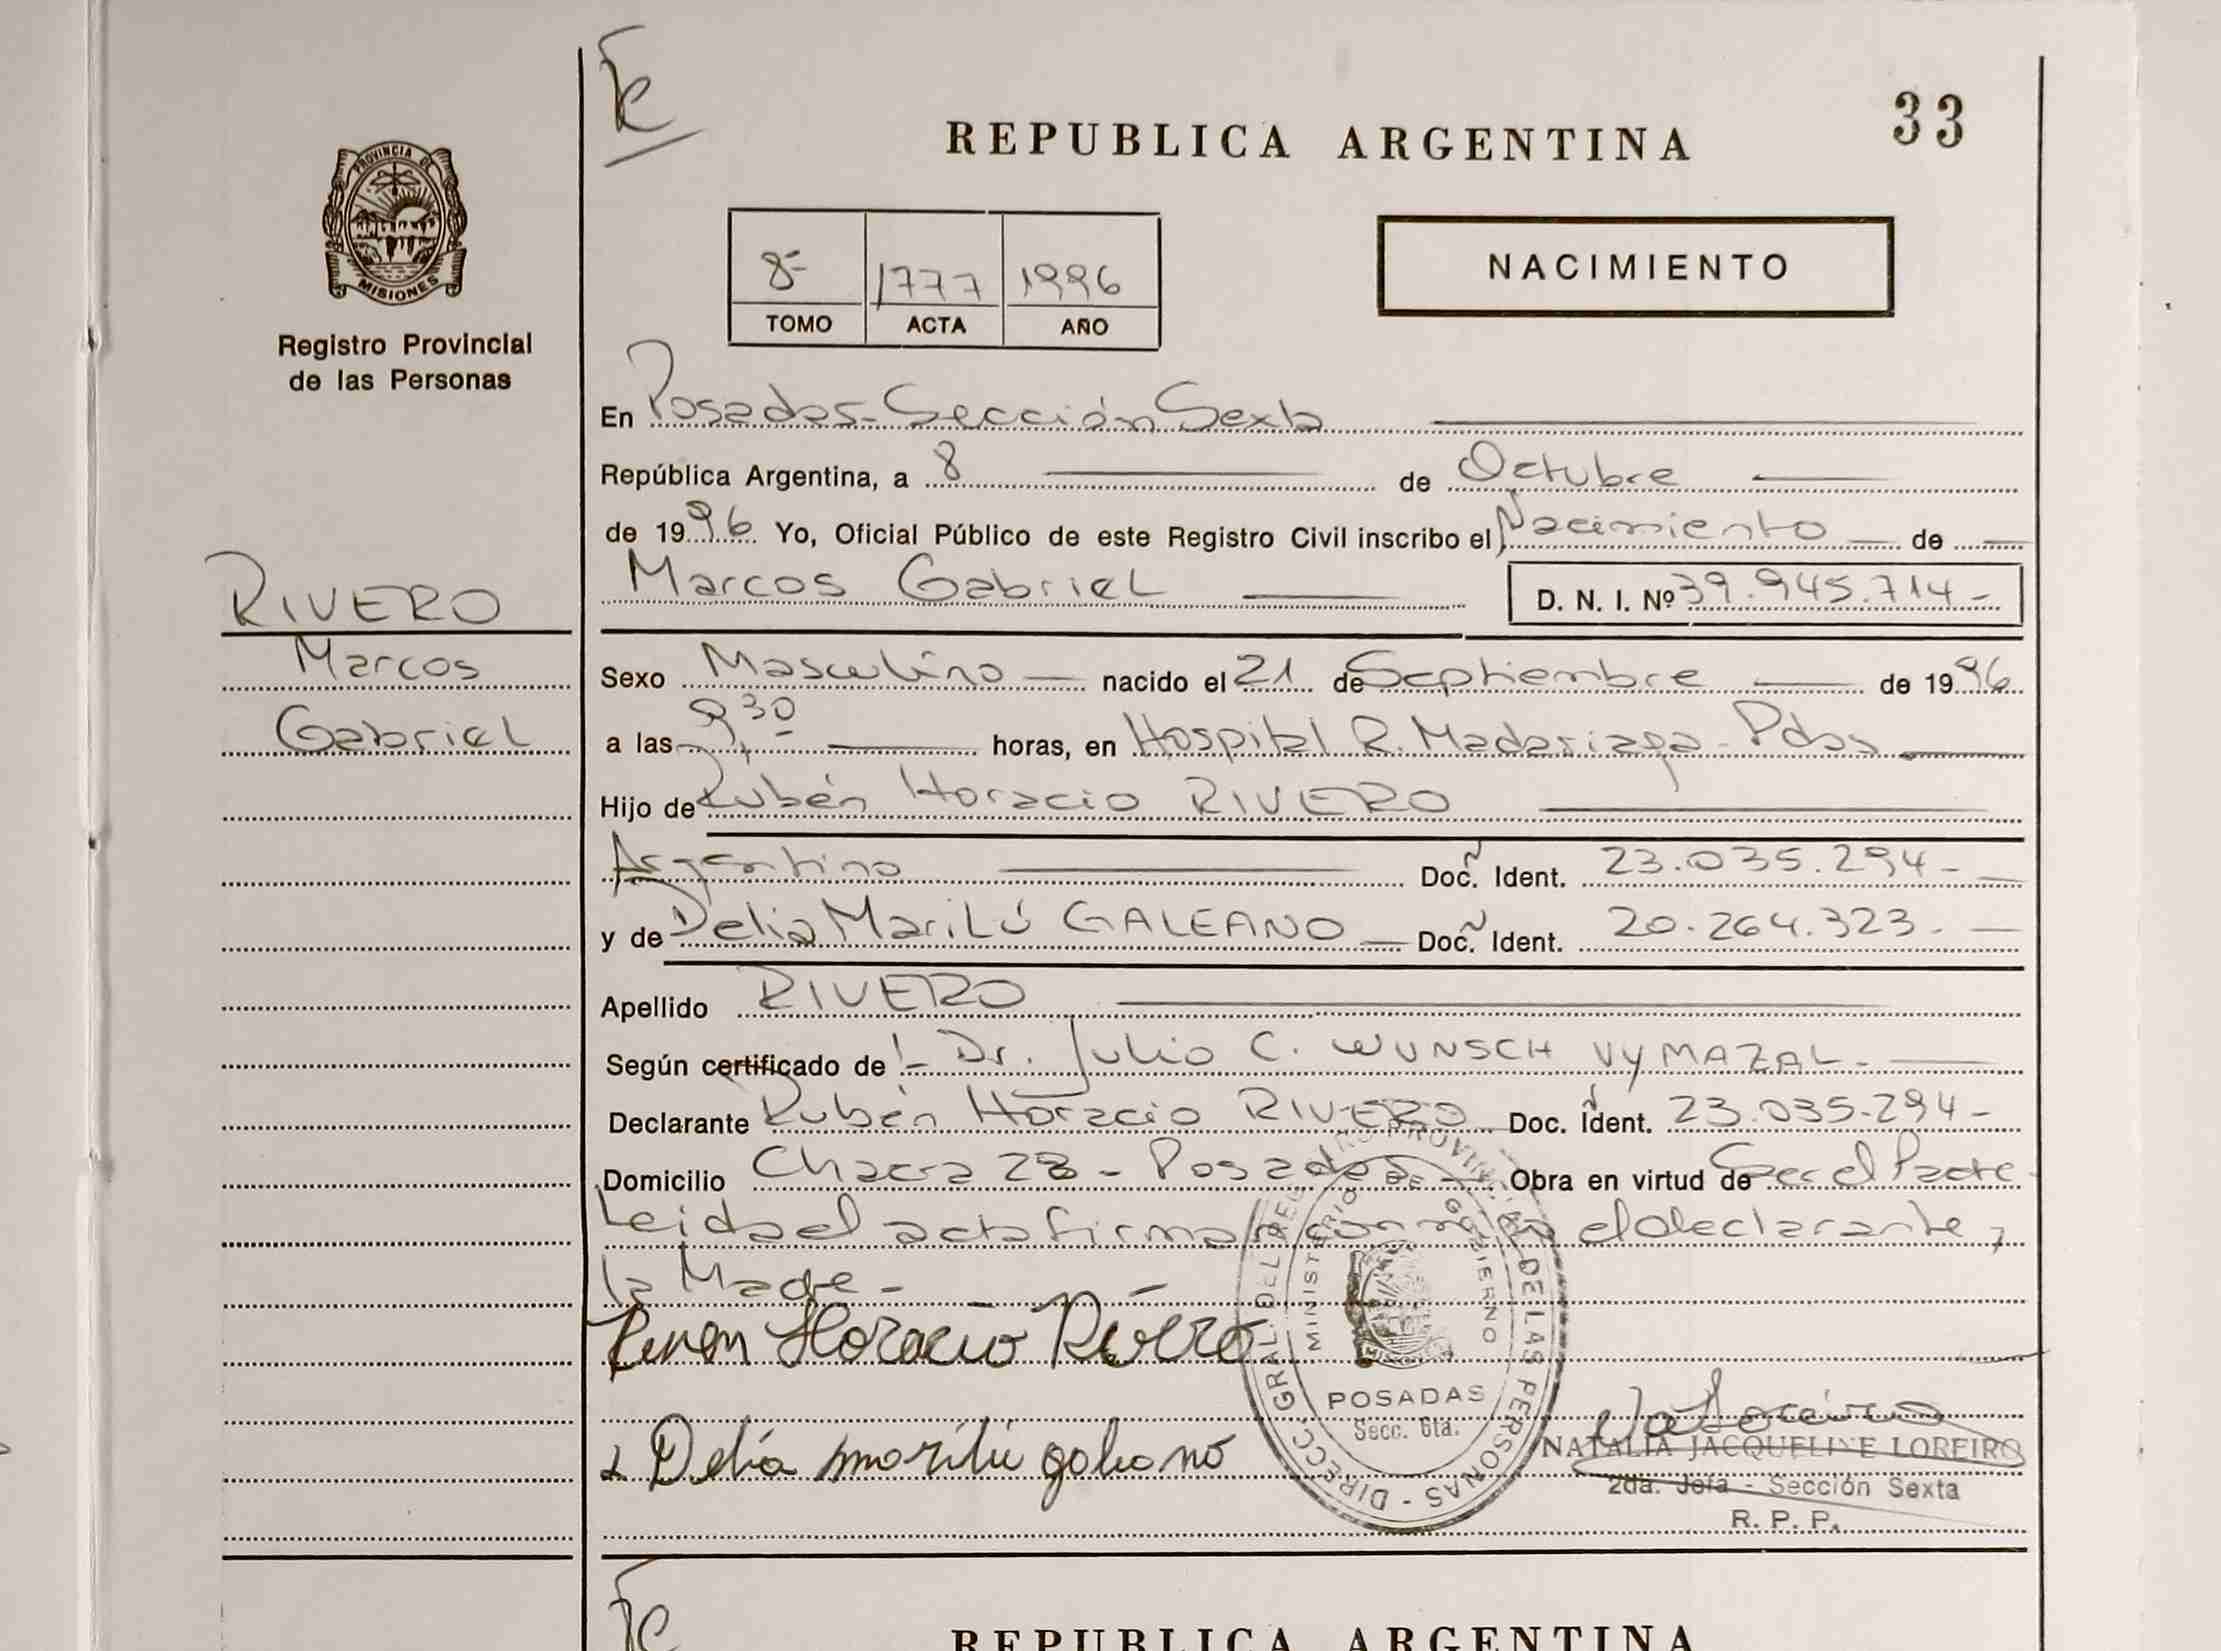 33
REPUBLICA ARGENTINA
PROVINCIA DE
MISIONES
Registro Provincial
de las Personas
8- 1777 1996
TOMO ACTA AÑO
NACIMIENTO
En Posadas-Sección Sexta
República Argentina, a 8 de Octubre
de 1996 Yo, Oficial Público de este Registro Civil inscribo el Nacimiento de
Marcos Gabriel D. N. I. Nº 39.945.714-
RIVERO
Marcos
Gabriel
Sexo Masculino nacido el 21 de Septiembre de 1996
a las 9,30 horas, en Hospital R. Madariaga-Pdas
Hijo de Rubén Horacio RIVERO
Argentino Doc. Ident. 23.035.294-
y de Delia Marilú GALEANO Doc. Ident. 20.264.323.
Apellido RIVERO
Según certificado de:- Dr. Julio C. WUNSCH VYMAZAL-
Declarante Rubén Horacio RIVERO Doc. Ident. 23.035.294-
Domicilio Chacra 28 - Posadas Obra en virtud de Ser el Padre
Leida el acta firman conmigo el declarante,
la Madre-
Horacio Rivero
Delia marilu galeano
DIRECC. GRAL. DEL REGISTRO PROVINCIAL DE LAS PERSONAS
MINISTERIO DE GOBIERNO
MISIONES
POSADAS
Secc. 6ta.
NATALIA JACQUELINE LOREIRO
2da. Jefa - Sección Sexta
R. P. P.
REPUBLICA ARGENTINA